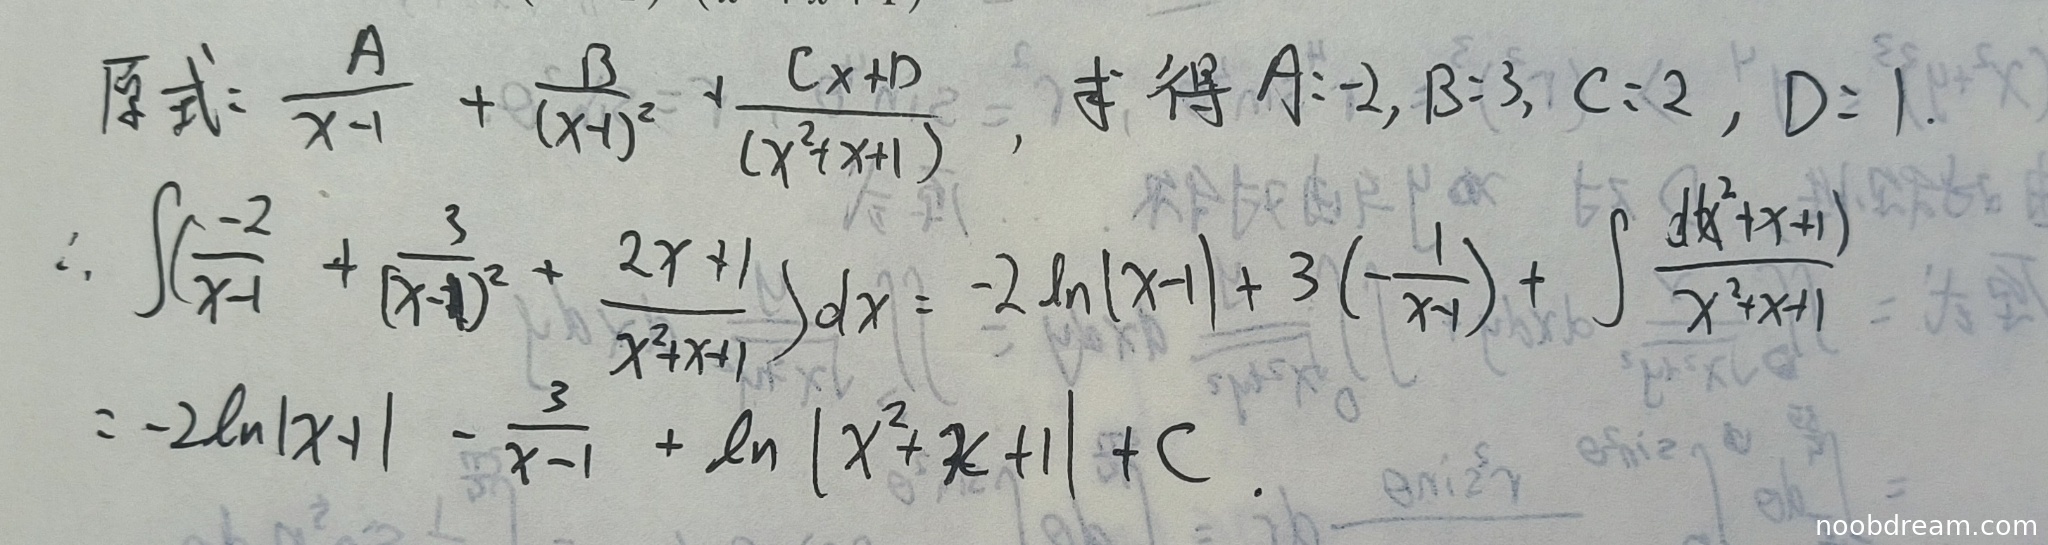 原式= A/(x-1) + B/(x-1)² + (Cx+D)/(x²+x+1) , 求得 A=-2, B=3, C=2 , D=1.
∴ ∫(-2/(x-1) + 3/(x-1)² + (2x+1)/(x²+x+1))dx = -2 ln|x-1| + 3(-1/(x-1)) + ∫ d(x²+x+1)/(x²+x+1)
= -2ln|x-1| - 3/(x-1) + ln|x²+x+1| + C .
noobdream.com